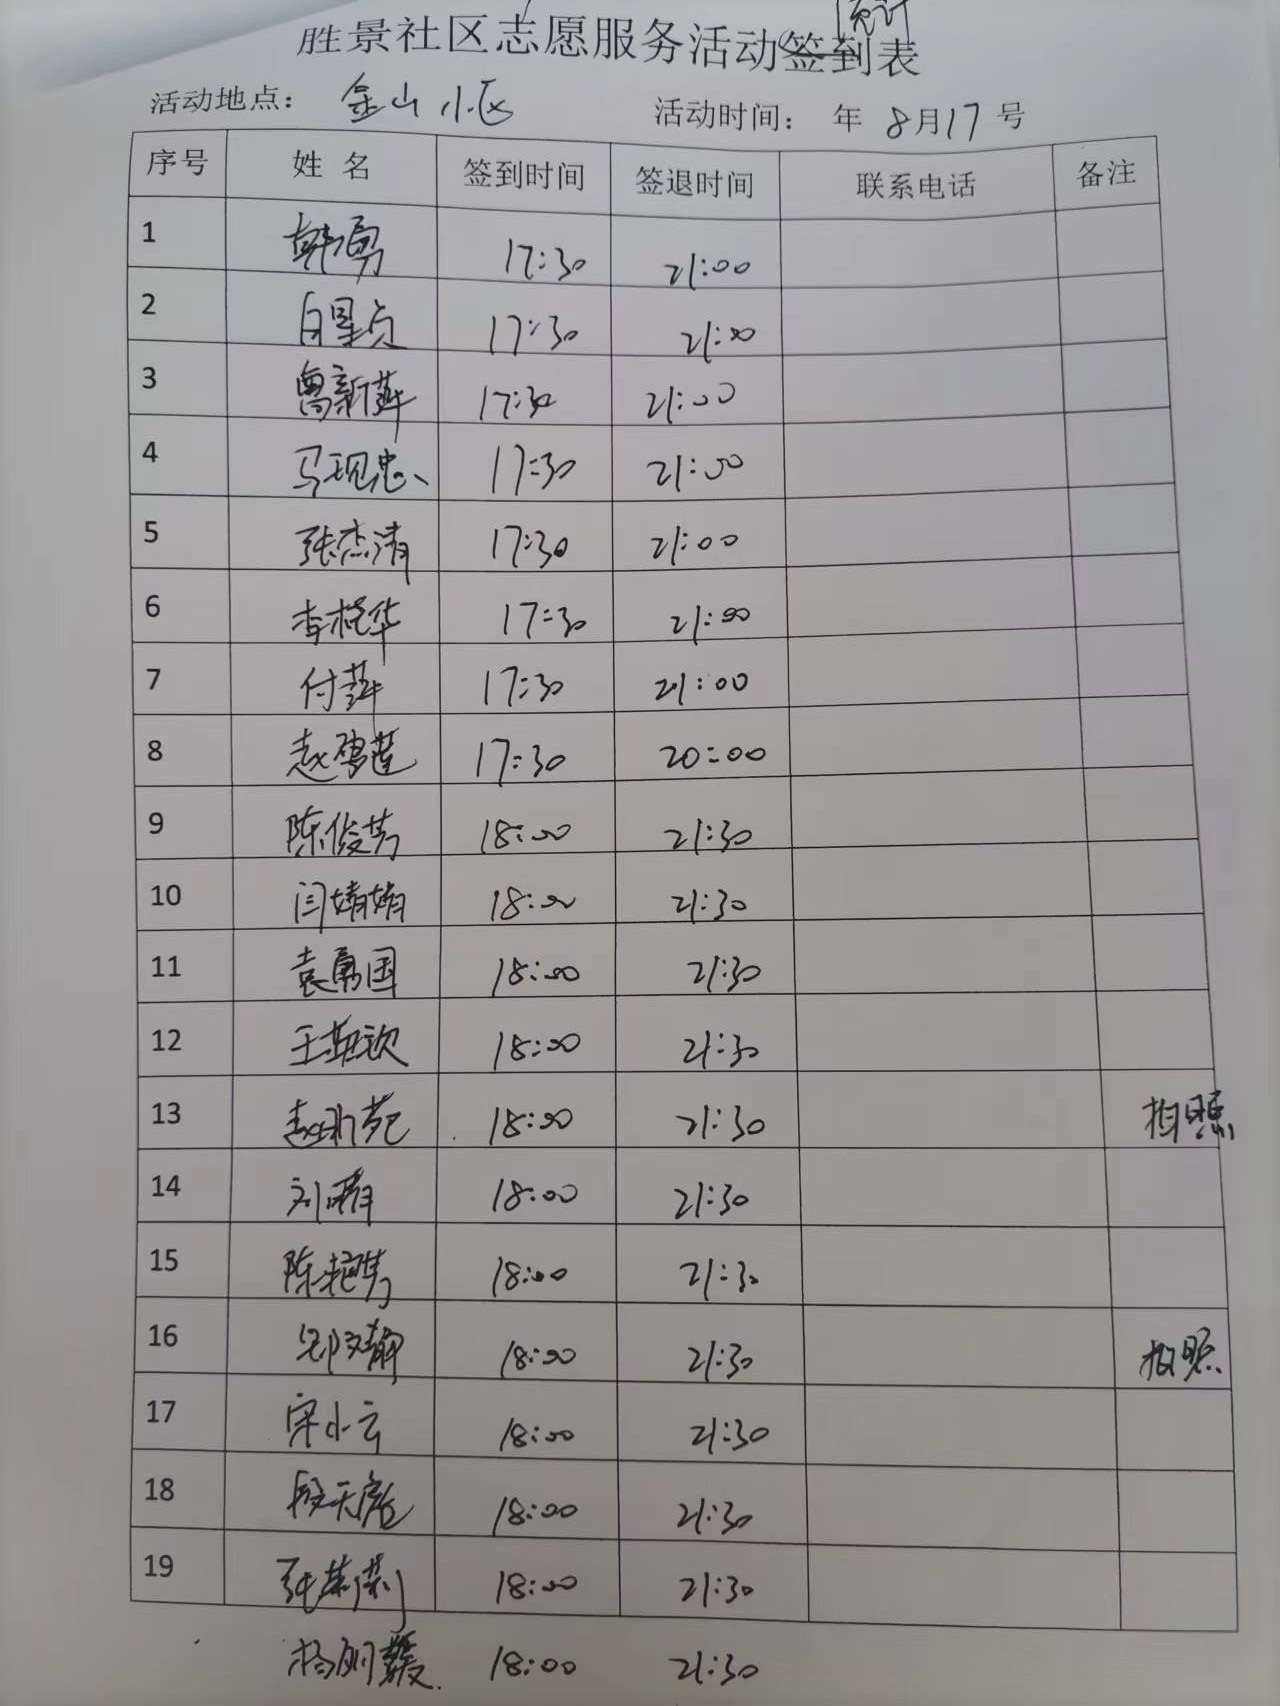 胜景社区志愿服务活动签到表
活动地点： 金山小区 活动时间： 年 8月17号
序号 姓 名 签到时间 签退时间 联系电话 备注
1 韩勇 17:30 21:00
2 白星贞 17:30 21:00
3 曾新萍 17:30 21:00
4 马现忠 17:30 21:00
5 张杰清 17:30 21:00
6 李桂华 17:30 21:00
7 付萍 17:30 21:00
8 赵 莲 17:30 20:00
9 陈俊芳 18:00 21:30
10 闫婧婧 18:00 21:30
11 袁勇国 18:00 21:30
12 王 欢 18:00 21:30
13 赵 苑 18:00 21:30 拍照
14 刘晴 18:00 21:30
15 陈艳芳 18:00 21:30
16 文静 18:00 21:30 拍照
17 宋小云 18:00 21:30
18 段天 18:00 21:30
19 张莉莉 18:00 21:30
杨 媛 18:00 21:30